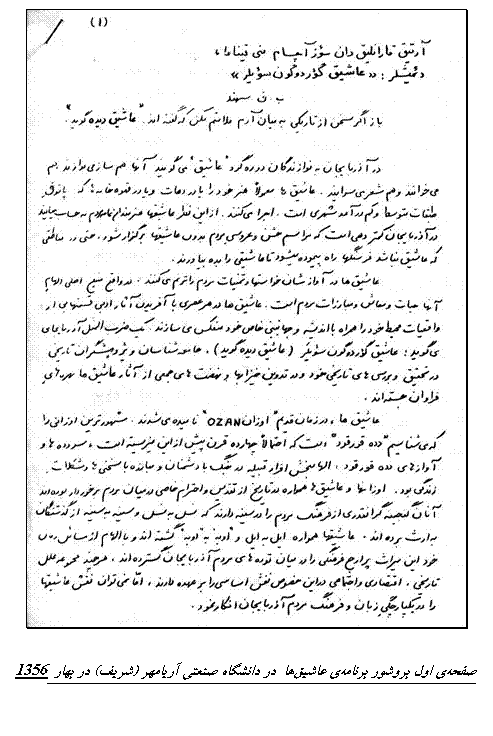 (1)
آرتیق قارانلیق دان سؤز آچسام منی قیناما،
دئمیشلر: «عاشیق گؤردوگون سؤیلر»
ب. ق. سهند
باز اگر سخن از تاریکی به میان آرم ملامتم مکن که گفته اند "عاشیق دیده گوید".
در آذربایجان به نوازندگان دوره گرد "عاشیق" می گویند آنها هم ساز می نوازند هم
می خوانند و هم شعر می سرایند. عاشیق ها معمولاً هنر خود را یا در دهات و یا در قهوه خانه ها که پاتوق
طبقات متوسط و کم در آمد شهری است، اجرا می کنند. از این نظر عاشیقها هنرمندان خلق به حساب میایند
در آذربایجان کمتر دهی است که مراسم جشن و عروسی مردم بدون عاشیقها برگزار شود. حتی در مناطقی
که عاشیق نباشد فرسنگها راه پیموده میشود تا عاشیقی را به ده بیاورند.
عاشیق ها در آوازشان خواستها و تمنیات مردم را ترنم می کنند. در واقع منبع اصلی الهام
آنها حیات و معاش و مبارزات مردم است. عاشیق ها در هر عصری با آفریدن آثار ادبی قسمتهایی از
واقعیات محیط خود را همراه با اندیشه و جهانبینی خاص خود منعکس می سازند. یک ضرب المثل آذربایجانی
می گوید: عاشیق گؤردوگون سؤیلر (عاشیق دیده گوید). جامعه شناسان و پژوهشگران تاریخی
در تحقیق و بررسی های تاریخی خود و در تدوین خیزشها و نهضت های جمعی از آثار عاشیق ها بهره های
فراوان جسته اند.
عاشیق ها، در زمان قدیم "اوزان OZAN" نامیده می شدند. مشهورترین اوزانی را
که می شناسیم "دده قورقود" است که احتمالاً چهارده قرن پیش از این میزیسته است، سروده ها و
آوازهای دده قورقود، الهام بخش افراد قبیله در جنگ با دشمنان و مبارزه با سختی ها و مشکلات
زندگی بود. اوزانها و عاشیق ها همواره در تاریخ از تقدس و احترام خاصی در میان مردم برخوردار بوده اند
آنان گنجینه گرانقدری از فرهنگ مردم را در سینه دارند که نسل به نسل و سینه به سینه از گذشتگان
به ارث برده اند. عاشیقها همواره ایل به ایل و "اوبه" به "اوبه" گشته اند و با الهام از مسائل زمان
خود این میراث پر ارج فرهنگی را در میان توده های مردم آذربایجان گسترده اند. هر چند مجموعه علل
تاریخی، اقتصادی و اجتماعی در این خصوص نقش اساسی را بر عهده دارند، اما نمی توان نقش عاشیقها
را در یکپارچگی زبان و فرهنگ مردم آذربایجان انکار نمود.
صفحه‌ی اول بروشور برنامه‌ی عاشیق‌ها در دانشگاه صنعتی آریامهر (شریف) در بهار 1356